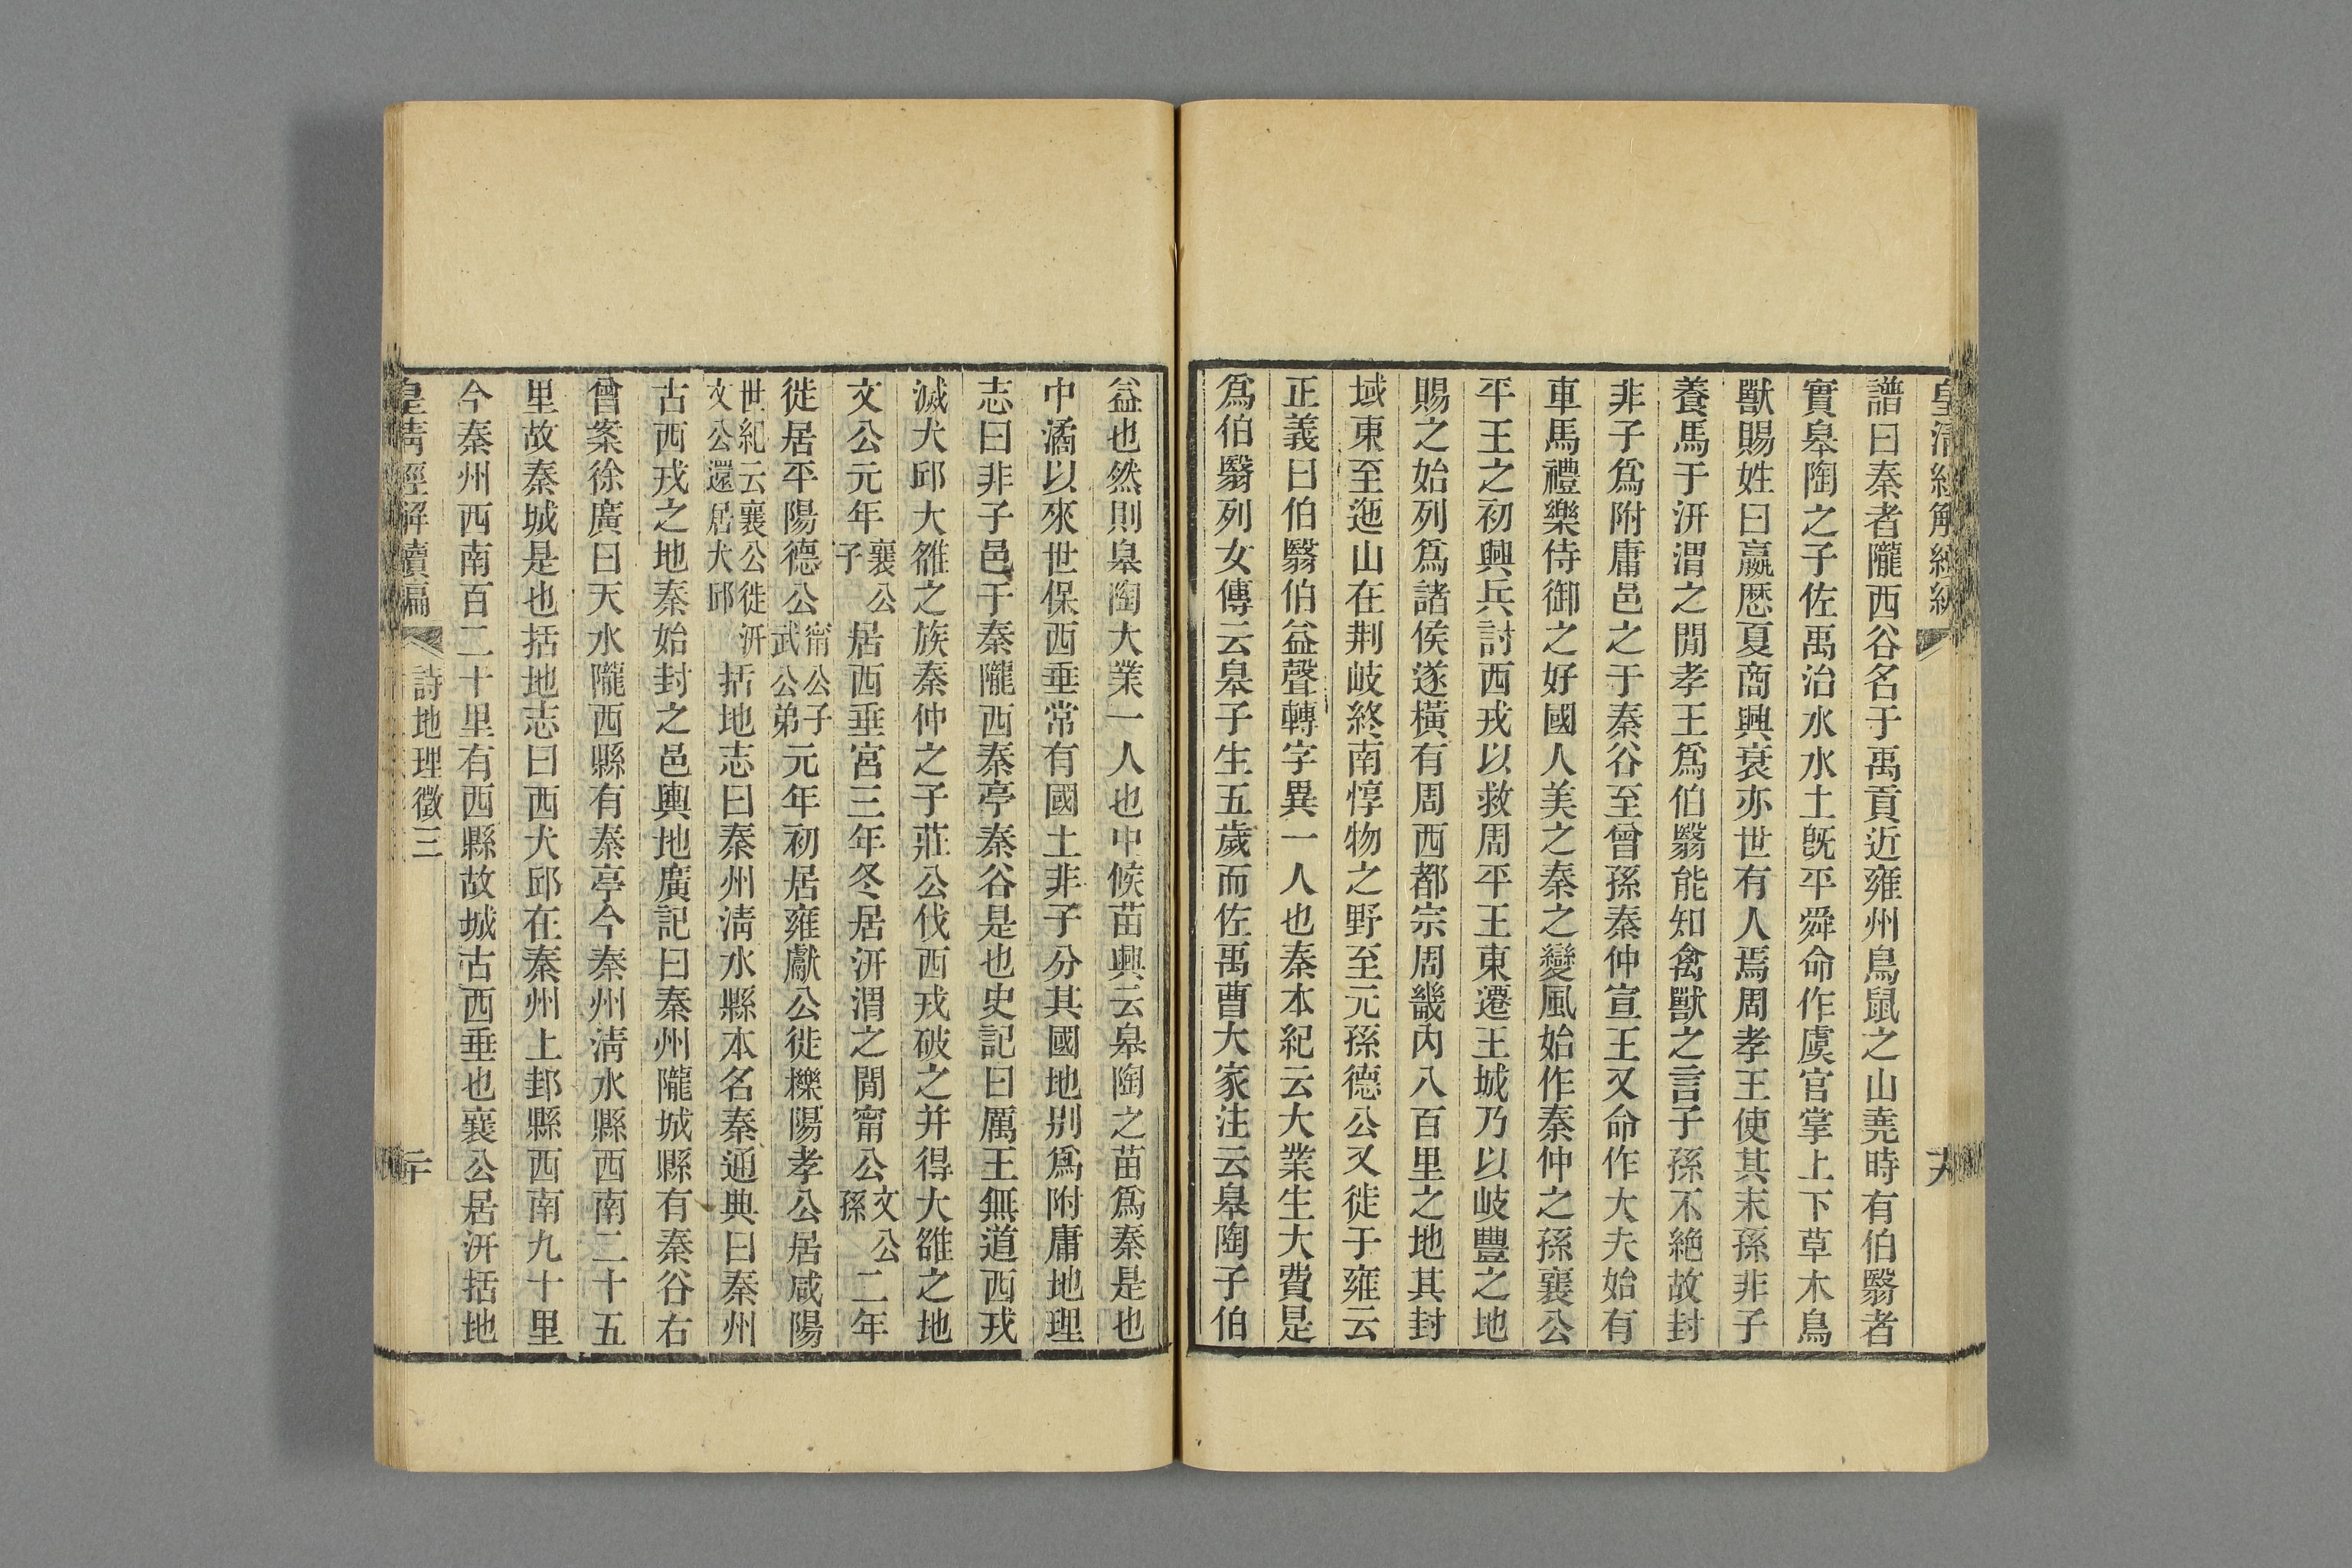 譜曰秦者隴西谷名于禹貢近雍州鳥鼠之山堯時有伯翳者
實皋陶之子佐禹治水水土旣平舜命作虞官掌上下草木鳥
獸賜姓曰嬴歷夏商興衰亦世有人焉周孝王使其末孫非子
養馬于汧渭之閒孝王爲伯翳能知禽獸之言子孫不絕故封
非子爲附庸邑之于秦谷至曾孫秦仲宣王又命作大夫始有
車馬禮樂侍御之好國人美之秦之變風始作秦仲之孫襄公
平王之初興兵討西戎以救周平王東遷王城乃以岐豐之地
賜之始列爲諸侯遂橫有周西都宗周畿內八百里之地其封
域東至迤山在荆岐終南惇物之野至元孫德公又徙于雍云
正義曰伯翳伯益聲轉字異一人也秦本紀云大業生大費是
爲伯翳列女傳云皋子生五歲而佐禹曹大家注云皋陶子伯
益也然則皋陶大業一人也中候苗興云皋陶之苗爲秦是也
中潏以來世保西垂常有國土非子分其國地別爲附庸地理
志曰非子邑于秦隴西秦亭秦谷是也史記曰厲王無道西戎
滅犬邱大雒之族秦仲之子莊公伐西戎破之并得大雒之地
文公元年襄公子居西垂宮三年冬居汧渭之閒甯公文公孫二年
徙居平陽德公甯公子武公弟元年初居雍獻公徙櫟陽孝公居咸陽
世紀云襄公徙汧文公還居犬邱括地志曰秦州淸水縣本名秦通典曰秦州
古西戎之地秦始封之邑輿地廣記曰秦州隴城縣有秦谷右
曾案徐廣曰天水隴西縣有秦亭今秦州淸水縣西南二十五
里故秦城是也括地志曰西犬邱在秦州上邽縣西南九十里
今秦州西南百二十里有西縣故城古西垂也襄公居汧括地
皇淸經解續編
詩地理徵三
二十